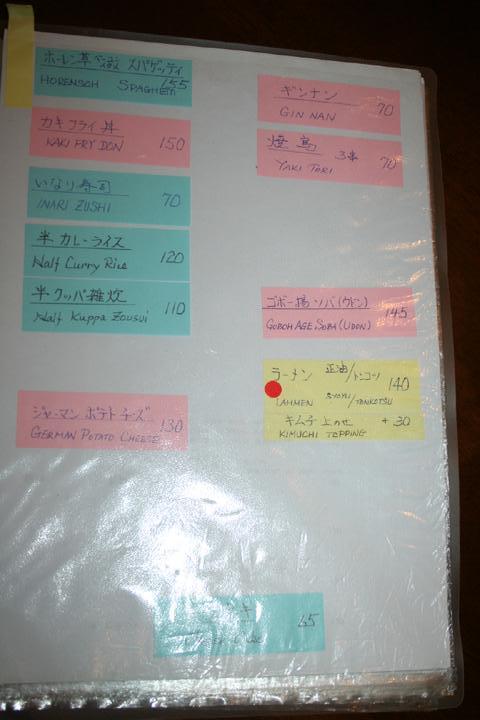 ホーレン草 スパゲッティ
HORENSOH SPAGHETTI 155
カキフライ丼
KAKI FRY DON 150
いなり寿司
INARI ZUSHI 70
半カレーライス
Half Curry Rice 120
半クッパ雑炊
Half Kuppa Zousui 110
ジャーマン ポテト チーズ
GERMAN POTATO CHEESE 130
ギンナン
GIN NAN 70
焼鳥 3串
YAKI TORI 70
ゴボー揚ソバ(ウドン)
GOBOH AGE SOBA (UDON) 145
ラーメン 正油/トンコツ
LAHMEN SYOYU/TONKOTSU 140
キムチ上のせ +30
KIMUCHI TOPPING